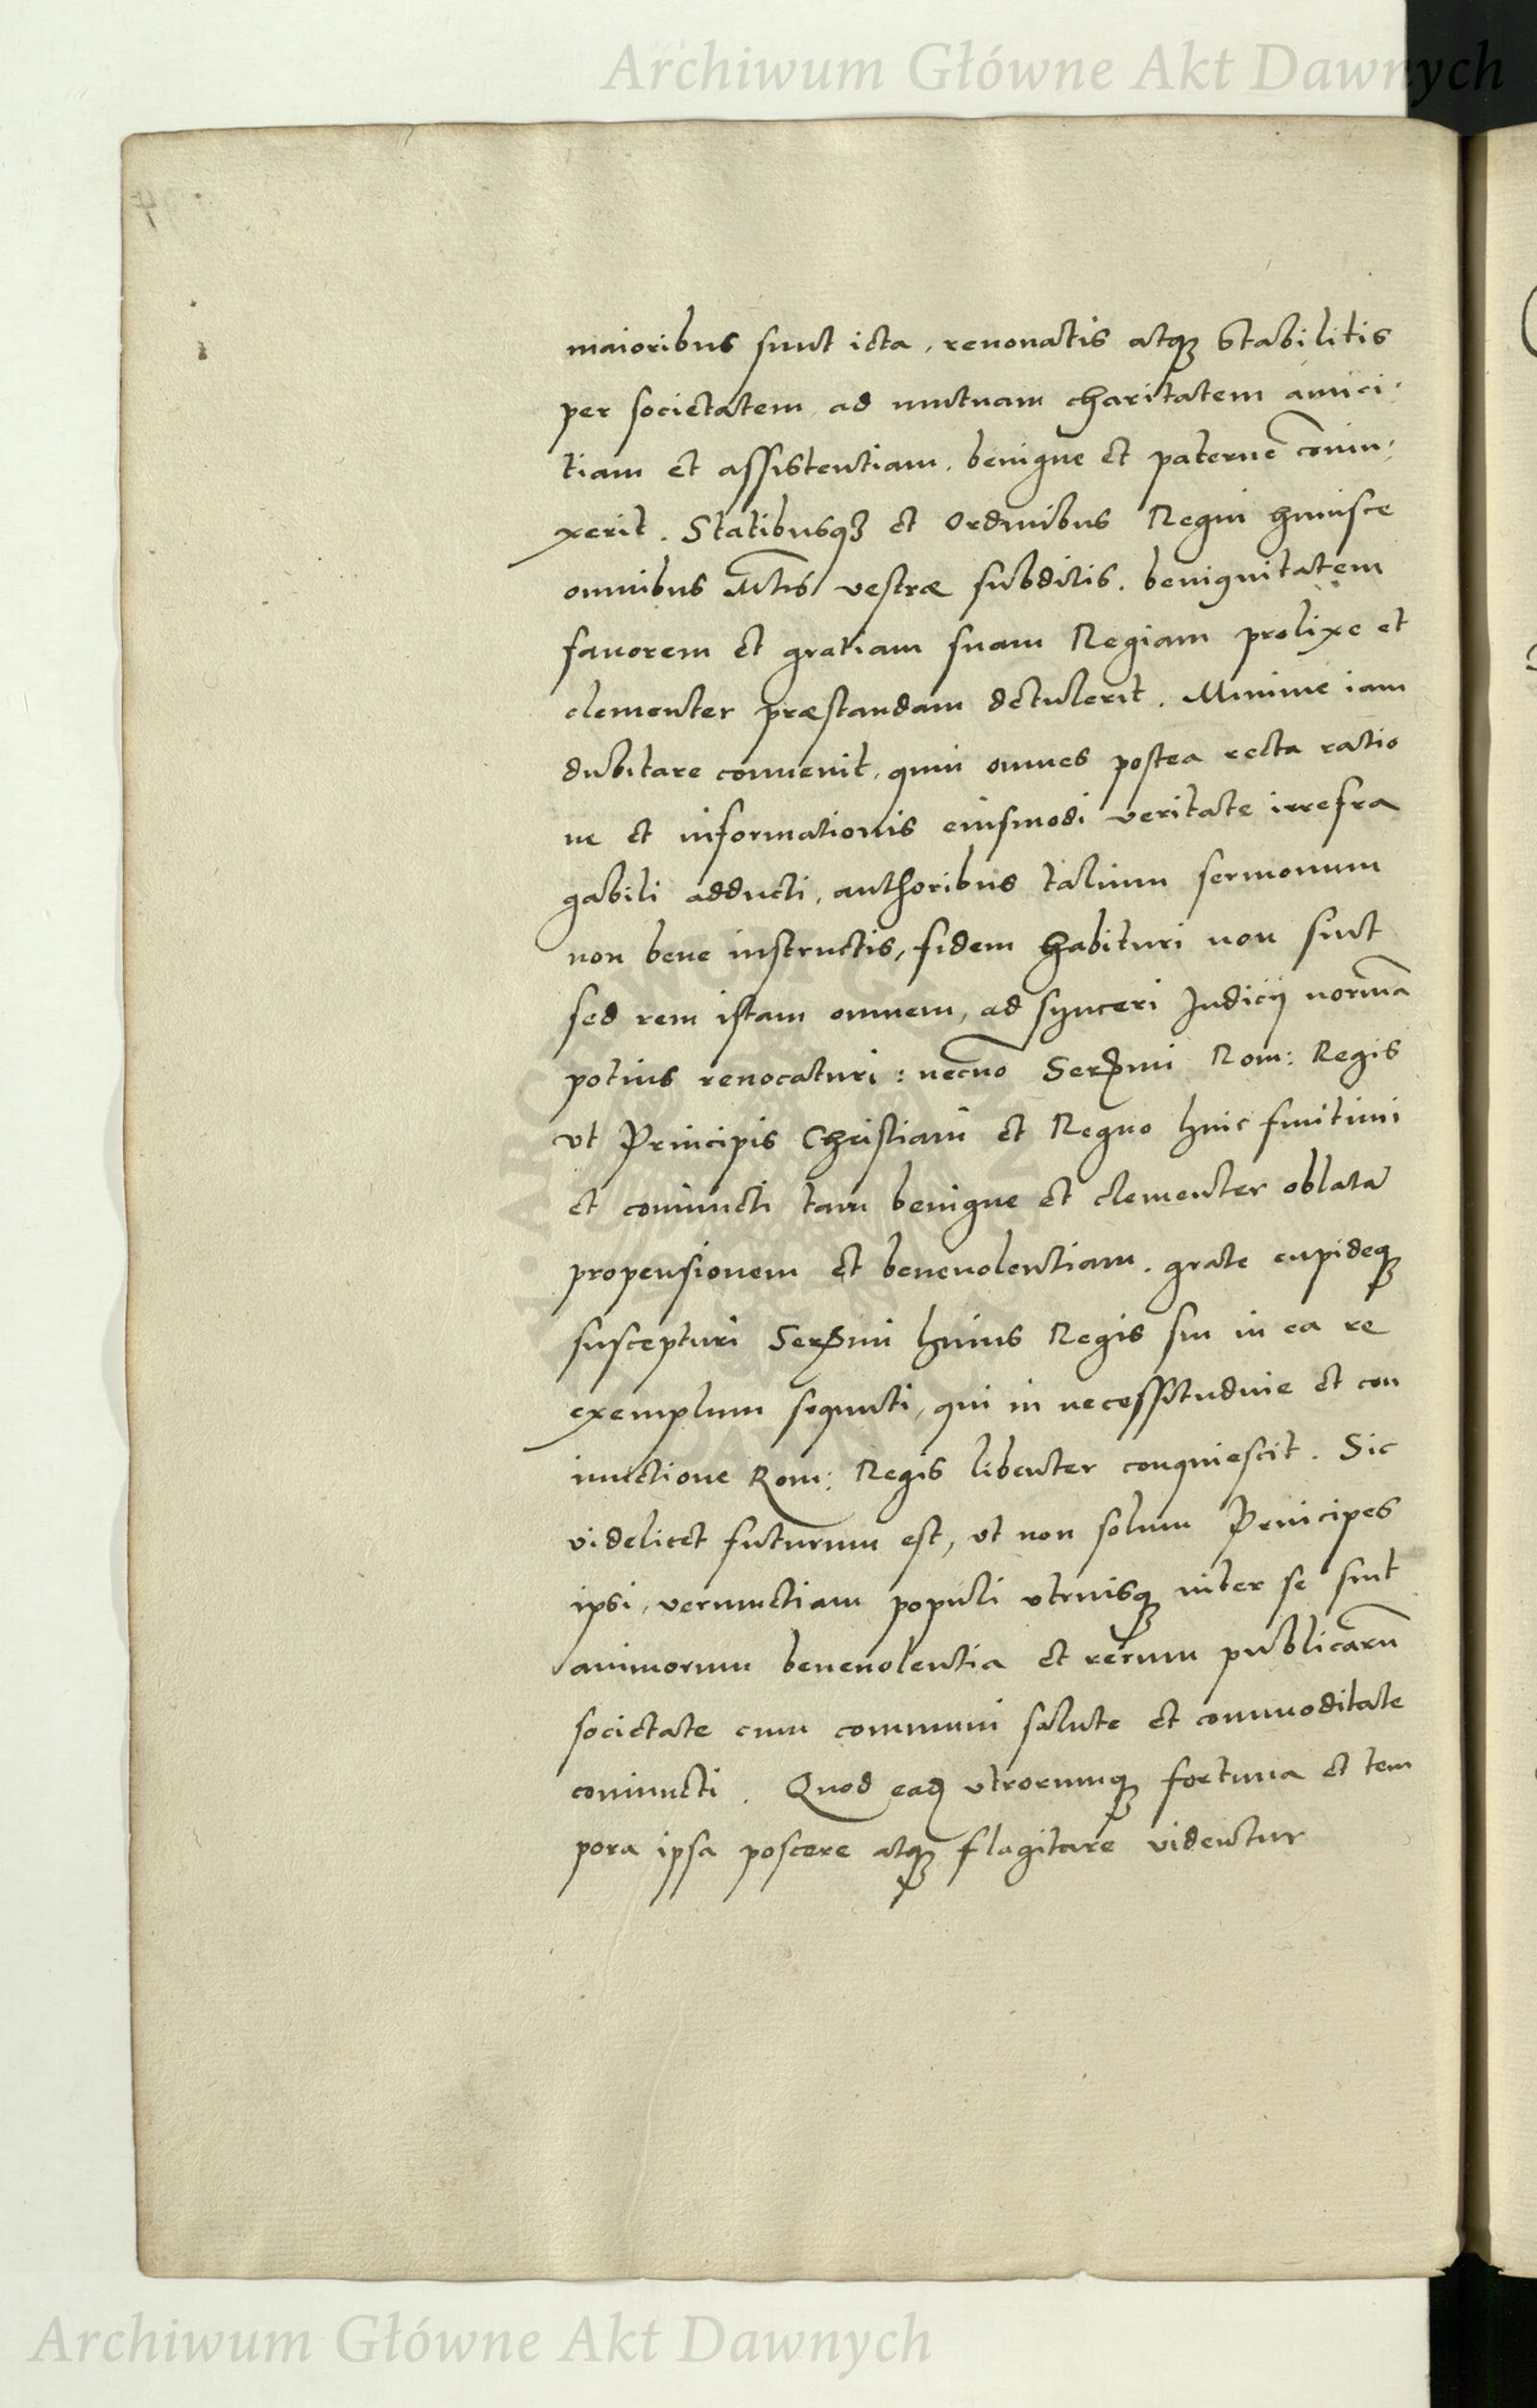 Archiwum Główne Akt Dawnych
maioribus sunt icta, renouatis atq; stabilitis
per societatem ad mutuam charitatem amici-
tiam et assistentiam, benigne et paterne coniu-
xerit. Statibusq; et Ordinibus Regni huiusce
omnibus Mtis vestræ subditis, benignitatem
fauorem et gratiam suam Regiam prolixe et
clementer præstandam detulerit. Minime iam
dubitare conuenit, quin omnes postea recta ratio
ne et informationis eiusmodi veritate irrefra
gabili adducti, authoribus talium sermonum
non bene instructis, fidem habituri non sint
sed rem istam omnem, ad synceri Judicij normā
potius reuocaturi: necno Sermi Rom: Regis
vt Principis Christiani et Regno huic finitimi
et coniuncti tam benigne et clementer oblatā
propensionem et beneuolentiam, grate cupideq;
suscepturi Sermi huius Regis sui in ea re
exemplum sequuti, qui in necessitudine et con
iunctione Rom: Regis libenter conquiescit. Sic
videlicet futurum est, vt non solum Principes
ipsi, verumetiam populi vtriusq; inter se sint
animorum beneuolentia et rerum publicarū
societate cum communi salute et commoditate
coniuncti. Quod eadē vtrorumq; fortuna et tem
pora ipsa poscere atq; flagitare videntur
Archiwum Główne Akt Dawnych